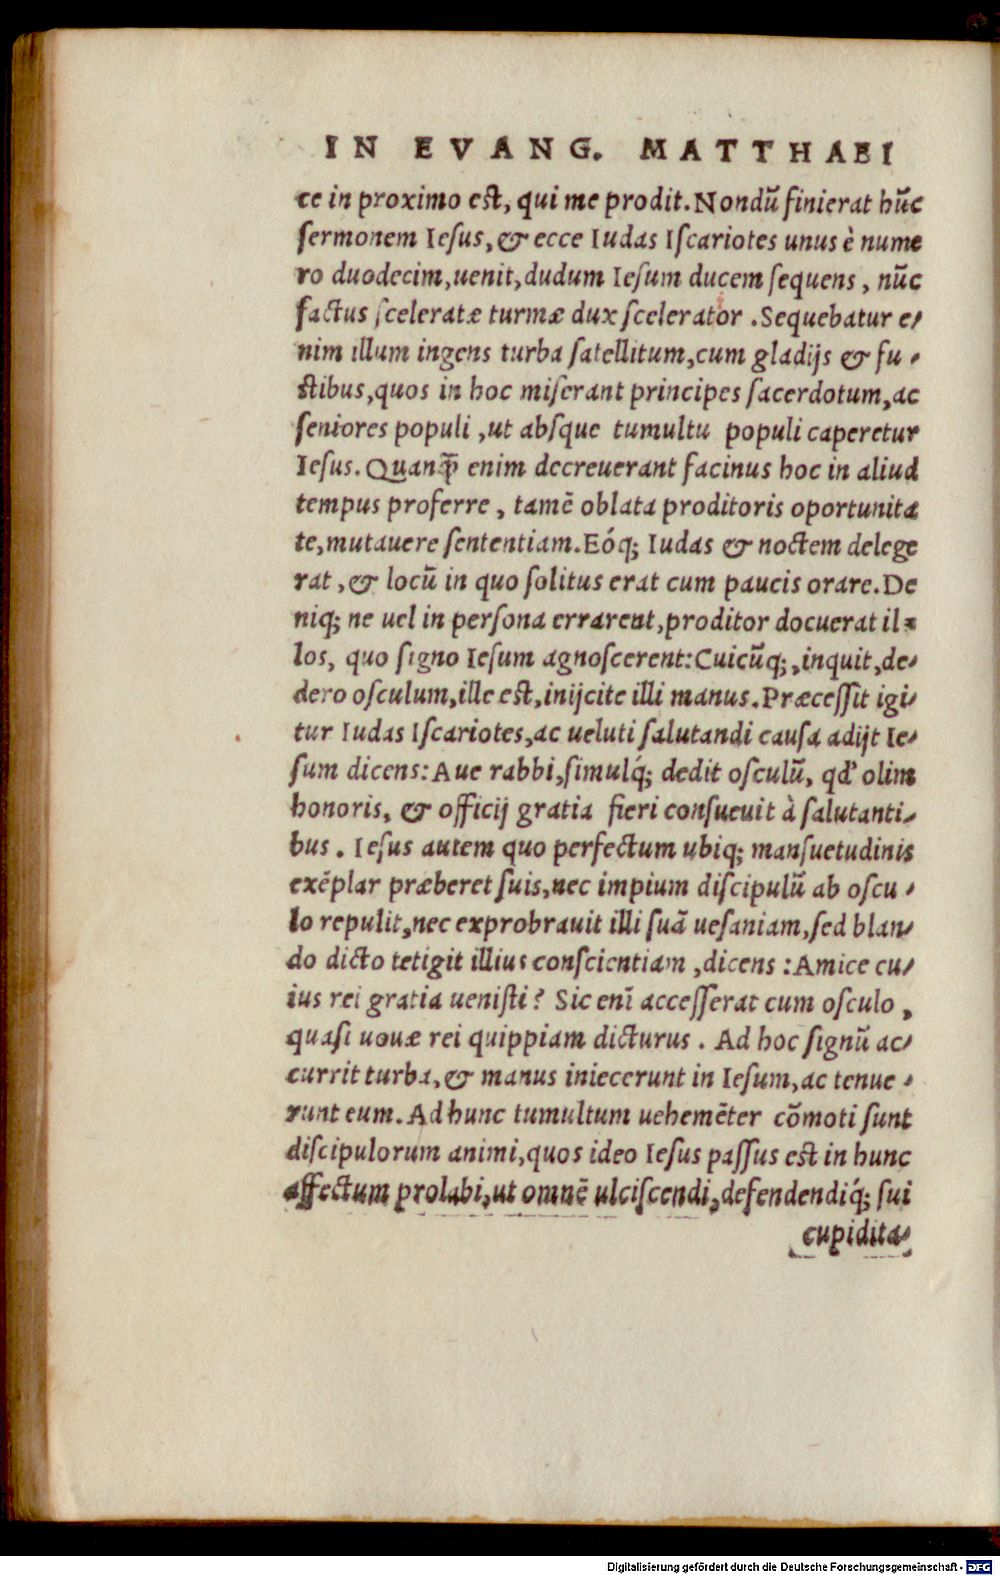 IN EVANG. MATTHAEI
ce in proximo est, qui me prodit. Nondū finierat hūc
sermonem Iesus, & ecce Iudas Iscariotes unus è nume
ro duodecim, uenit, dudum Iesum ducem sequens, nūc
factus sceleratæ turmæ dux scelerator. Sequebatur e-
nim illum ingens turba satellitum, cum gladijs & fu-
stibus, quos in hoc miserant principes sacerdotum, ac
seniores populi, ut absque tumultu populi caperetur
Iesus. Quanꝙ̃ enim decreuerant facinus hoc in aliud
tempus proferre, tamē oblata proditoris oportunita
te, mutauere sententiam. Eóq; Iudas & noctem delege
rat, & locū in quo solitus erat cum paucis orare. De
niq; ne uel in persona errarent, proditor docuerat il-
los, quo signo Iesum agnoscerent: Cuicūq;, inquit, de-
dero osculum, ille est, inijcite illi manus. Præcessit igi-
tur Iudas Iscariotes, ac ueluti salutandi causa adijt Ie-
sum dicens: Aue rabbi, simulq́; dedit osculū, qd' olim
honoris, & officij gratia fieri consueuit à salutanti-
bus. Iesus autem quo perfectum ubiq; mansuetudinis
exēplar præberet suis, nec impium discipulū ab oscu-
lo repulit, nec exprobrauit illi suā uesaniam, sed blan-
do dicto tetigit illius conscientiam, dicens: Amice cu-
ius rei gratia uenisti? Sic enī accesserat cum osculo,
quasi nouæ rei quippiam dicturus. Ad hoc signū ac-
currit turba, & manus iniecerunt in Iesum, ac tenue-
runt eum. Ad hunc tumultum uehemēter cōmoti sunt
discipulorum animi, quos ideo Iesus passus est in hunc
affectum prolabi, ut omnē ulciscendi, defendendiq́; sui
cupidita-
Digitalisierung gefördert durch die Deutsche Forschungsgemeinschaft - DFG